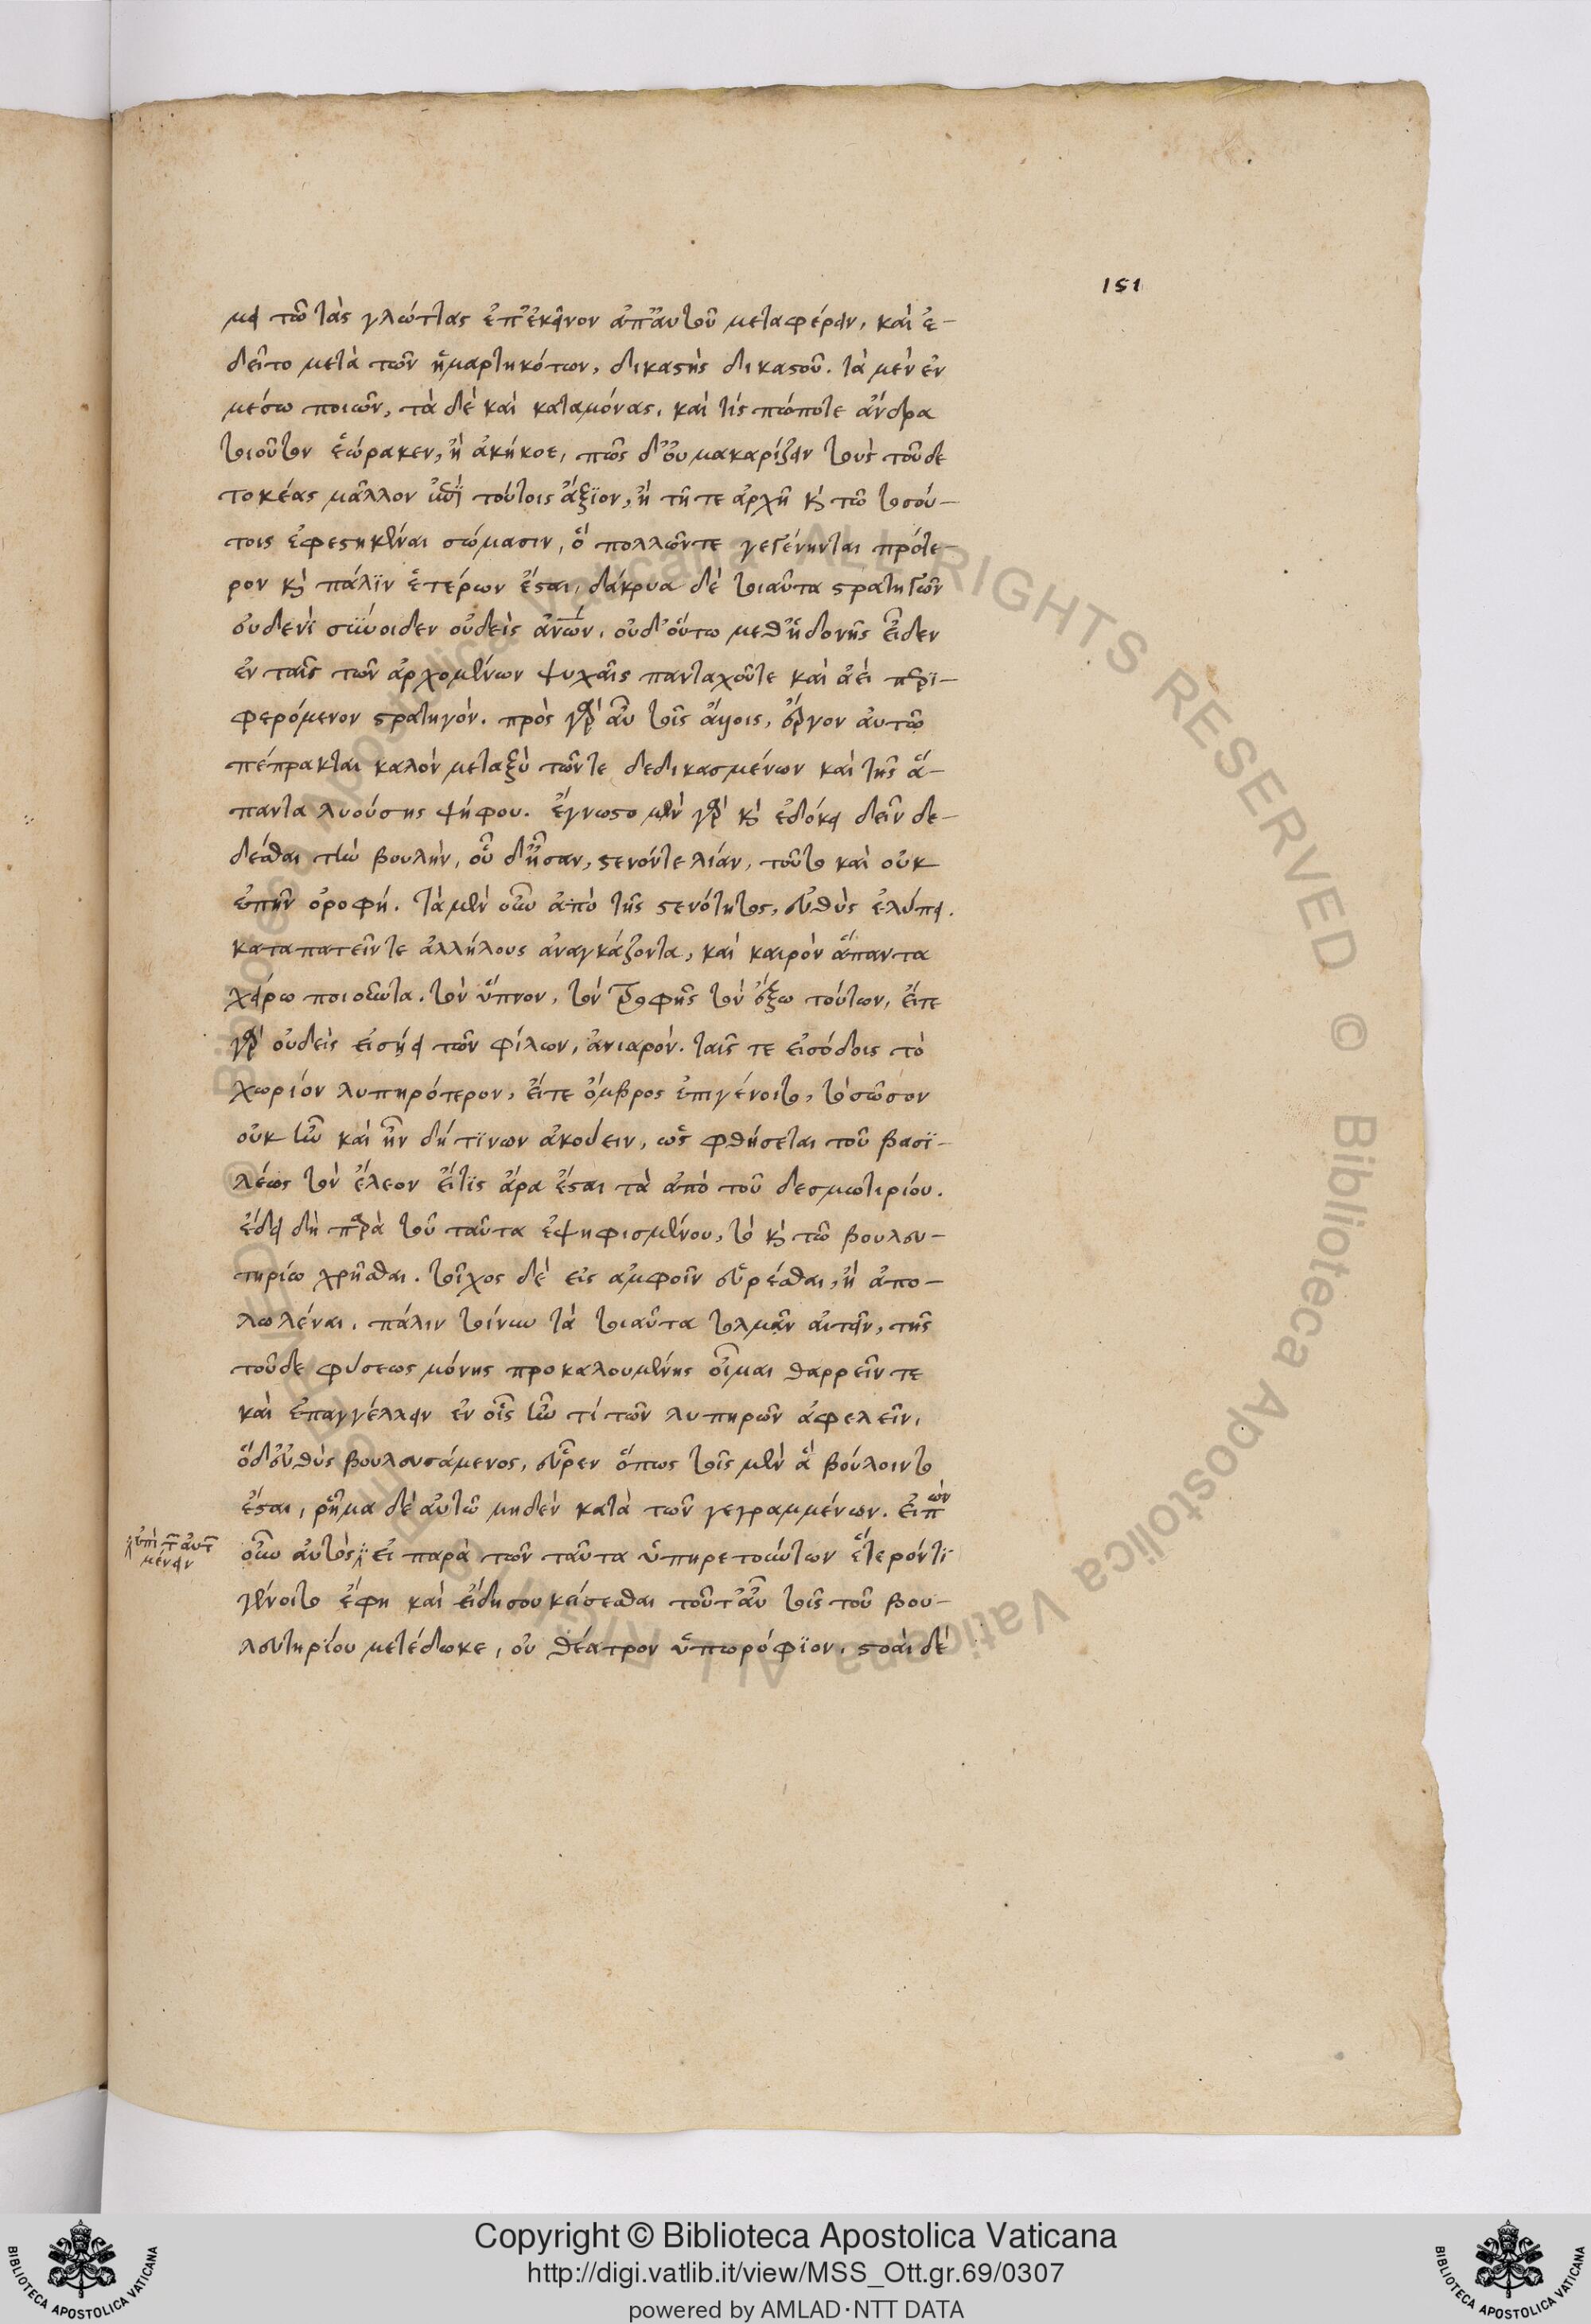 151
μει τῶ τὰς γλώττας ἐπ' ἐκεῖνον ἀπ' αὐτοῦ μεταφέρειν, καὶ ἐ-
δεῖτο μετὰ τῶν ἡμαρτηκότων, δικαστὴς δικαστοῦ. τὰ μὲν ἐν
μέσω ποιῶν, τὰ δὲ καὶ καταμόνας. καὶ τίς πώποτε ἄνδρα
τοιοῦτον ἑώρακεν, ἢ ἀκήκοε, πῶς δ' οὐ μακαρίζειν τοὺς τοῦδε
τοκέας μᾶλλον ἐπὶ τούτοις ἄξϊον, ἢ τῆ τε ἀρχῆ καὶ τῶ τοσού-
τοις ἐφεστηκέναι σώμασιν, ὃ πολλῶντε γεγένηνται πρότε-
ρον καὶ πάλϊν ἑτέρων ἔσται, δάκρυα δὲ τοιαῦτα στρατηγῶν
οὐδενὶ σύνοιδεν οὐδεὶς ἀνων. οὐδ' οὕτω μεθ' ἡδονῆς εἶδεν
ἐν ταῖς τῶν ἀρχομένων ψυχαῖς πανταχοῦτε καὶ ἀεὶ περϊ-
φερόμενον στρατηγόν. πρὸς γὰρ αὖ τοῖς ἄλλοις, ἔργον αὐτῶ
πέπρακται καλὸν μεταξὺ τῶντε δεδικασμένων καὶ τῆς ἅ-
παντα λυούσης ψήφου. ἔγνωστο μὲν γὰρ καὶ ἐδόκει δεῖν δε-
δέσθαι τὴν βουλὴν, οὗ δῆσαν, στενόντε λίαν, τοῦτο καὶ οὐκ
ἐπῆν ὀροφή. τὰ μὲν οὖν ἀπὸ τῆς στενότητος, εὐθὺς ἐλύπει.
καταπατεῖντε ἀλλήλους ἀναγκάζοντα, καὶ καιρὸν ἅπαντα
χείρω ποιοῦντα. τὸν ὕπνον, τὸν τροφῆς τὸν ἔξω τούτων, εἴτε
γὰρ οὐδεὶς εἰσήει τῶν φίλων, ἀνιαρόν. ταῖς τε εἰσόδοις τὸ
χωρίον λυπηρότερον, εἴτε ὄμβρος ἐπιγένοιτο, τὸ σῶσον
οὐκ ἦν καὶ ἦν δή τϊνων ἀκούειν, ὡς φθήσεται τοῦ βασϊ-
λέως τὸν ἔλεον εἴτϊς ἄρα ἔσται τὰ ἀπὸ τοῦ δεσμωτιρίου.
ἔδει δὴ παρὰ τοῦ ταῦτα ἐψηφισμένου, τὸ καὶ τῶ βουλευ-
τηρίω χρῆσθαι. τοῖχος δὲ εἷς ἀμφοῖν εὑρέσθαι, ἢ ἀπο-
λωλέναι. πάλιν τοίνυν τὰ τοιαῦτα τολμᾶν αἰτεῖν, τῆς
τοῦδε φύσεως μόνης προκαλουμένης οἶμαι θαρρεῖν τε
καὶ ἐπαγγέλλειν ἐν οἷς ἦν τί τῶν λυπηρῶν ἀφελεῖν.
ὅδ' εὐθὺς βουλευσάμενος, εὗρεν ὅπως τοῖς μὲν ἃ βούλοιντο
ἔσται, ῥῆμα δὲ αὐτῶ μηδὲν κατὰ τῶν γεγραμμένων. εἰπὼν
ἐπὶ τ αὐτ
μένειν
οὖν αὐτὸς εἰ παρὰ τῶν ταῦτα ὑπηρετούντων ἕτερόντϊ
γένοιτο ἔφη καὶ εἴδησου κείσεσθαι τοῦτ' αὖ τοῖς τοῦ βου-
λευτηρίου μετέδωκε, οὐ θέατρον ὑπωρόφϊον, στοαὶ δὲ
Copyright © Biblioteca Apostolica Vaticana
http://digi.vatlib.it/view/MSS_Ott.gr.69/0307
powered by AMLAD·NTT DATA